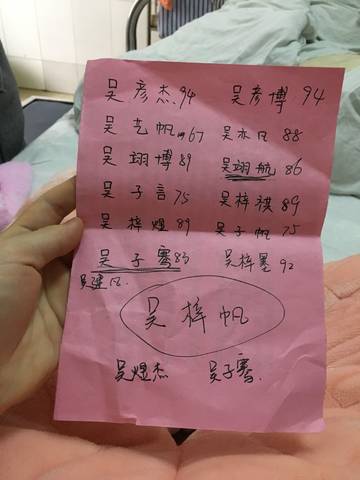 吴彦杰94 吴彦博 94
吴艺帆 67 吴亦凡 88
吴翊博89 吴翊航 86
吴子言75 吴梓祺89
吴梓煜89 吴子帆 75
吴子骞83 吴梓墨92
吴建凡
吴梓帆
吴煜杰 吴子骞